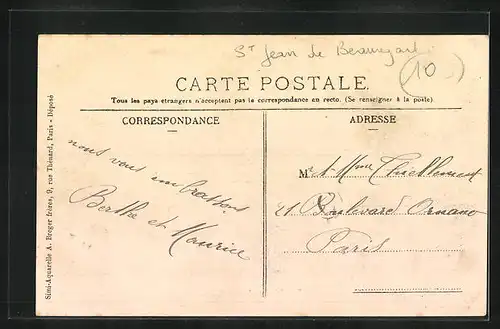 St Jean de Beauregard
10
CARTE POSTALE.
Tous les pays étrangers n'acceptent pas la correspondance en recto. (Se renseigner à la poste).
CORRESPONDANCE
ADRESSE
nous vous embrassons
Berthe et Maurice
M. & Mme Thiellement
21 Boulevard Ornano
Paris
Simi-Aquarelle A. Breger frères, 9, rue Thénard, Paris - Déposé